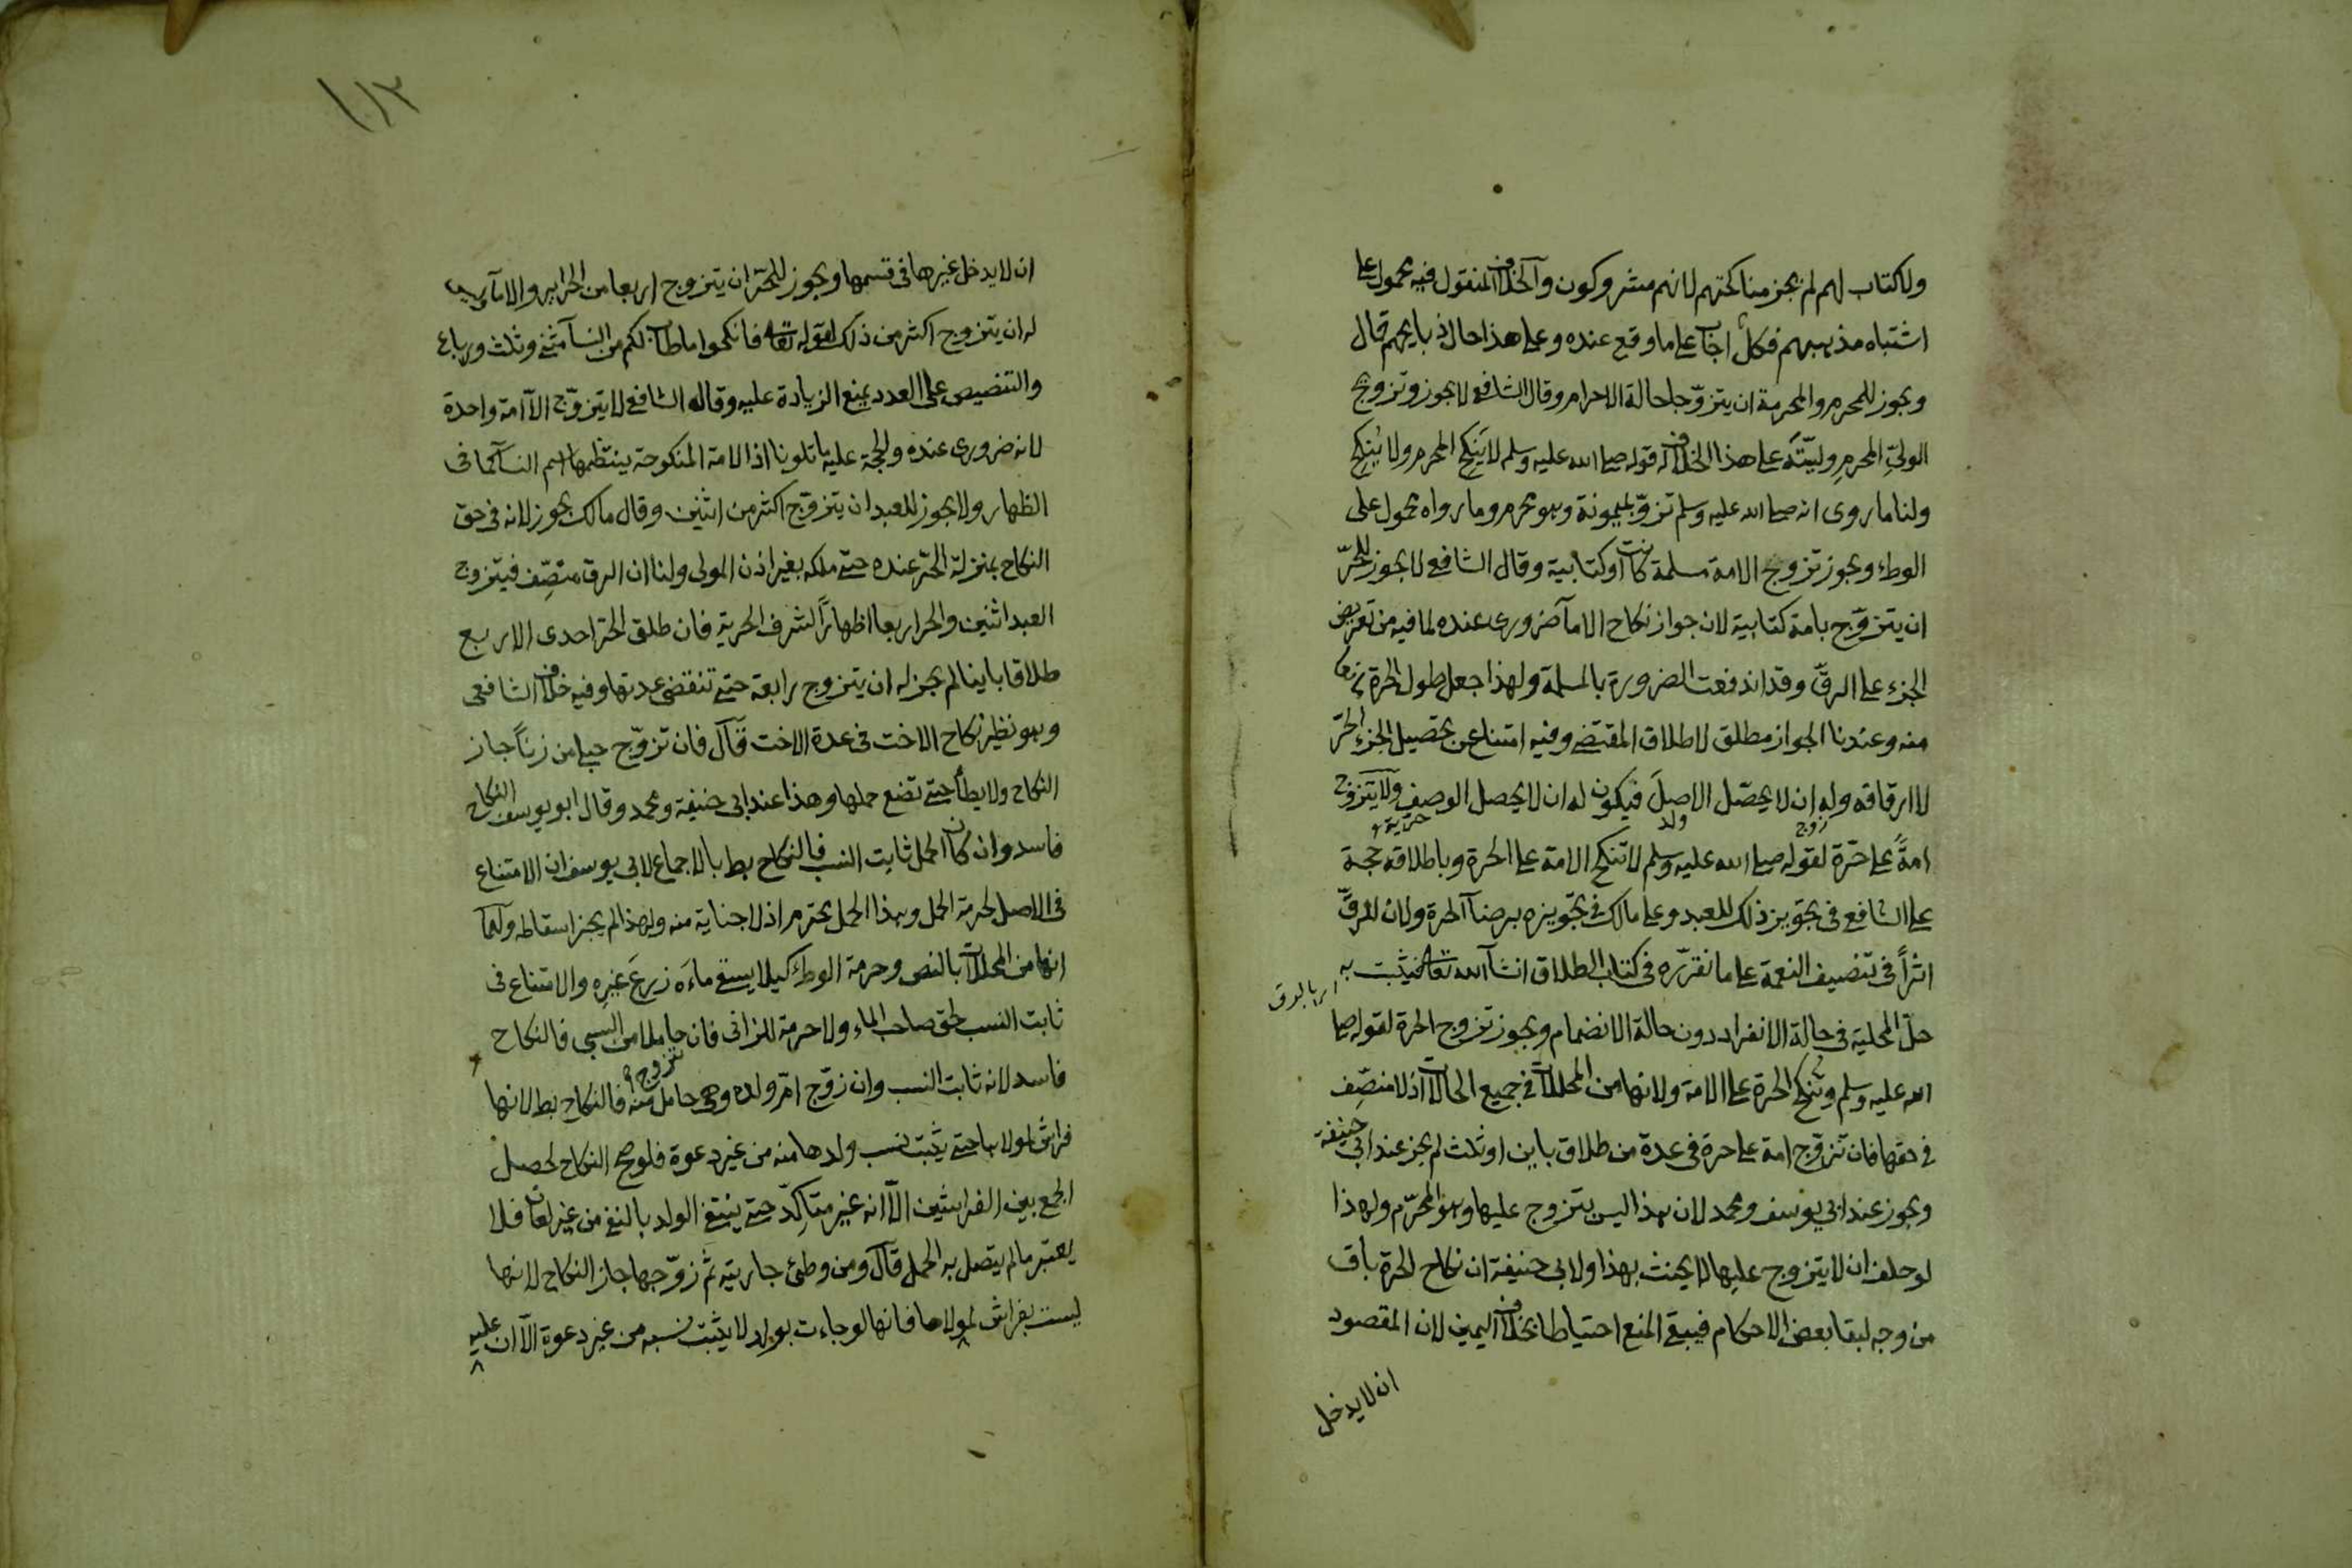 ولا كتاب لهم لم يجز مناكحتهم لانهم مشركون والخلاف المنقول فيه محمول على
اشتباه مذهبهم فكل اجاب على ما وقع عنده وعلى هذا حال ذبايحهم قال
ويجوز للمحرم والمحرمة ان يتزوجا حالة الاحرام وقال الشافعي لا يجوز وتزويج
الولي المحرم وليته على هذا الخلاف له قوله صلى الله عليه وسلم لا يَنكح المحرم ولا يُنكح
ولنا ما روى انه صلى الله عليه وسلم تزوج بميمونة وهو محرم وما رواه محمول على
الوطء ويجوز تزويج الامة مسلمة كانت او كتابية وقال الشافعي لا يجوز للحرّ
ان يتزوج بامة كتابية لان جواز نكاح الامآ ضروري عنده لما فيه من تعريض
الجزء على الرقّ وقد اندفعت الضرورة بالمسلمة ولهذا جعل طول الحرة مانعا
منه وعندنا الجواز مطلق لاطلاق المقتضي وفيه امتناع عن تحصيل الجزء الحرّ
لا ارقاقه وله ان لا يحصّل الاصلَ فيكون له ان لا يحصل الوصف ولا يتزوج
زوج ولد حرية
امةً على حرّة لقوله صلى الله عليه وسلم لا تنكح الامة على الحرة وباطلاقه حجة
على الشافعي في تجويز ذلك للعبد وعلى مالك في تجويزه برضآ الحرة ولان للرقّ
اثراً في تنصيف النعمة على ما نقرّره في كتاب الطلاق انشآ الله تعالى فيثبت به
اى بالرق
حلّ المحلية في حالة الانفراد دون حالة الانضمام ويجوز تزوج الحرة لقوله صلى
الله عليه وسلم وتنكح الحرة على الامة ولانها من المحللات في جميع الحالات اذ لا منصّف
في حقها فان تزوّج امة على حرة في عدة من طلاق باين او ثلث لم يجز عند ابي حنيفة
ويجوز عند ابي يوسف ومحمد لان هذا ليس بتزوج عليها وهو المحرّم ولهذا
لو حلف ان لا يتزوج عليها لا يحنث بهذا ولابي حنيفة ان نكاح الحرة باق
من وجه لبقا بعض الاحكام فيبقى المنع احتياطا بخلاف اليمين لان المقصود
ان لا يدخل
ان لا يدخل غيرها في قسمها ويجوز للحرّ ان يتزوج اربعا من الحراير والامآ وليس
له ان يتزوج اكثر من ذلك لقوله تعالى فانكحوا ما طاب لكم من النسآ مثنى وثلث ورباع
والتنصيص على العدد يمنع الزيادة عليه وقال الشافعي لا يتزوّج الا امة واحدة
لانه ضروري عنده والحجة عليه ما تلونا اذ الامة المنكوحة ينتظمها اسم النسآ كما في
الظهار ولا يجوز للعبد ان يتزوّج اكثر من اثنين وقال مالك يجوز لانه في حق
النكاح بمنزلة الحرّ عنده حتى ملكه بغير اذن المولى ولنا ان الرق منصّف فيتزوج
العبد اثنين والحر اربعا اظهاراً لشرف الحرية فان طلق الحر احدى الاربع
طلاقا باينا لم يجز له ان يتزوج رابعة حتى تنقضي عدتها وفيه خلاف الشافعي
وهو نظير نكاح الاخت في عدة الاخت قال فان تزوّج حبلى من زناً جاز
النكاح ولا يطأ حتى تضع حملها وهذا عند ابي حنيفة ومحمد وقال ابو يوسف النكاح
فاسد وان كان الحمل ثابت النسب فالنكاح بط بالاجماع لابي يوسف ان الامتناع
في الاصل لحرمة الحمل وهذا الحمل محترم اذ لا جناية منه ولهذا لم يجز اسقاطه ولهما
انها من المحللات بالنص وحرمة الوطء كيلا يسقي ماءَه زرعَ غيرِه والامتناع في
ثابت النسب لحق صاحب الماء ولا حرمة للزاني فان حاملا من السبي فالنكاح
تزوج
فاسد لانه ثابت النسب وان زوّج امّ ولده وهي حامل منه فالنكاح بط لانها
فراش لمولاها حتى يثبت نسب ولدها منه من غير دعوة فلو صح النكاح لحصل
الجمع بين الفراشين الا انه غير متاكدّ حتى ينتفي الولد بالنفي من غير لعان فلا
يعتبر ما لم يتصل به الحمل قال ومن وطئ جاريته ثم زوّجها جاز النكاح لانها
ليست بفراش لمولاها فانها لو جاءت بولد لا يثبت نسبه من غير دعوة الا ان عليه